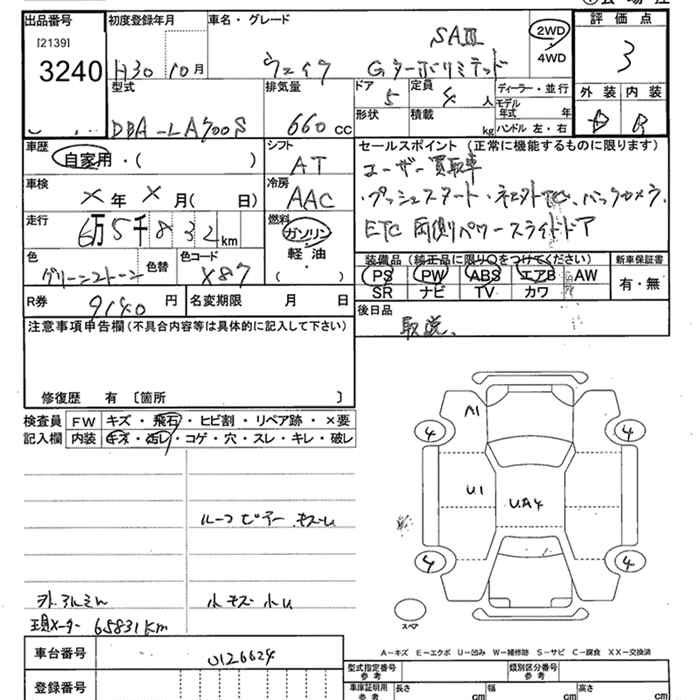 出品番号 初度登録年月 車名・グレード 評価点
[2139]
3240
H30 10月 ウェイク SAⅢ Gターボリミテッド 2WD・4WD 3
型式 排気量 ドア 定員 ディーラー・並行 外装 内装
DBA-LA700S 660cc 5 4人 モデル年式 年
形状 積載 kg ハンドル 左・右 D B
車歴 シフト セールスポイント (正常に機能するものに限ります)
自家用・( ) AT ユーザー買取車
車検 冷房 プッシュスタート・
× 年 × 月( 日) AAC バックカメラ
走行 燃料 ETC 両側パワースライドドア
6万5千832km ガソリン
色 色替 色コード 軽油 装備品 (純正品に限り○をつけてください) 新車保証書
グリーン X87 ( ) PS PW ABS エアB AW 有・無
SR ナビ TV カワ
R券 9140円 名変期限 月 日 後日品
注意事項申告欄(不具合内容等は具体的に記入して下さい) 取説、
修復歴 有 〔箇所 〕
検査員 FW キズ・飛石・ヒビ割・リペア跡・×要
記入欄 内装 キズ・汚レ・コゲ・穴・スレ・キレ・破レ
A1
4 4
U1 UA4
ルーフ
4 4
小キズ 小U
現メーター 65831km
スペア
A-キズ E-エクボ U-凹み W-補修跡 S-サビ C-腐食 XX-交換済
車台番号 0126624
型式指定番号 参考 類別区分番号 参考
登録番号 車庫証明用 参考 長さ cm 幅 cm 高さ cm